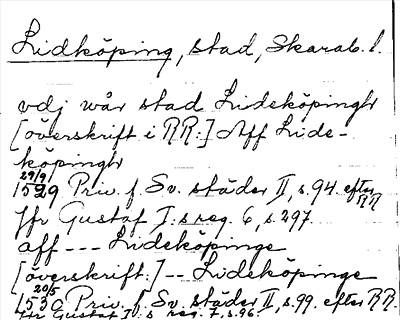 Lidköping, stad, Skarab. l.
vdj wår stad Lideköpingh
[överskrift i RR:] Aff Lide-
köpingh
29/9 1529 Priv. f. Sv. städer II, s. 94. efter RR
Jfr Gustaf I:s reg. 6, s. 297.
aff --- Lideköpinge
[överskrift:] -- Lideköpinge
20/5 1530 Priv. f. Sv. städer II, s. 99. efter RR.
Jfr Gustaf I:s reg. 7, s. 96